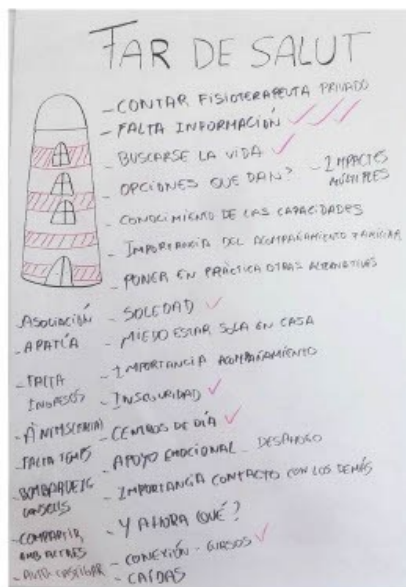 FAR DE SALUT
- CONTAR FISIOTERAPEUTA PRIVADO
- FALTA INFORMACIÓN
- BUSCARSE LA VIDA
- OPCIONES QUE DAN? - IMPACTES MÚLTIPLES
- CONOCIMIENTO DE LAS CAPACIDADES
- IMPORTANCIA DEL ACOMPAÑAMIENTO FAMILIAR
- PONER EN PRÁCTICA OTRAS ALTERNATIVES
- SOLEDAD
- MIEDO ESTAR SOLA EN CASA
- IMPORTANCIA ACOMPAÑAMIENTO
- INSEGURIDAD
- CENTROS DE DÍA
- APOYO EMOCIONAL - DESAHOGO
- IMPORTANCIA CONTACTO CON LOS DEMÁS
- Y AHORA QUÉ?
- CONEXIÓN - CURSOS
- CAÍDAS
- ASOCIACIÓN
- APATÍA
- FALTA
INGRESOS
- FALTA TEMPS
- BOMBARDEIG
CONSELLS
- COMPARTIR
AMB ALTRES
- AUTO CASTIGAR